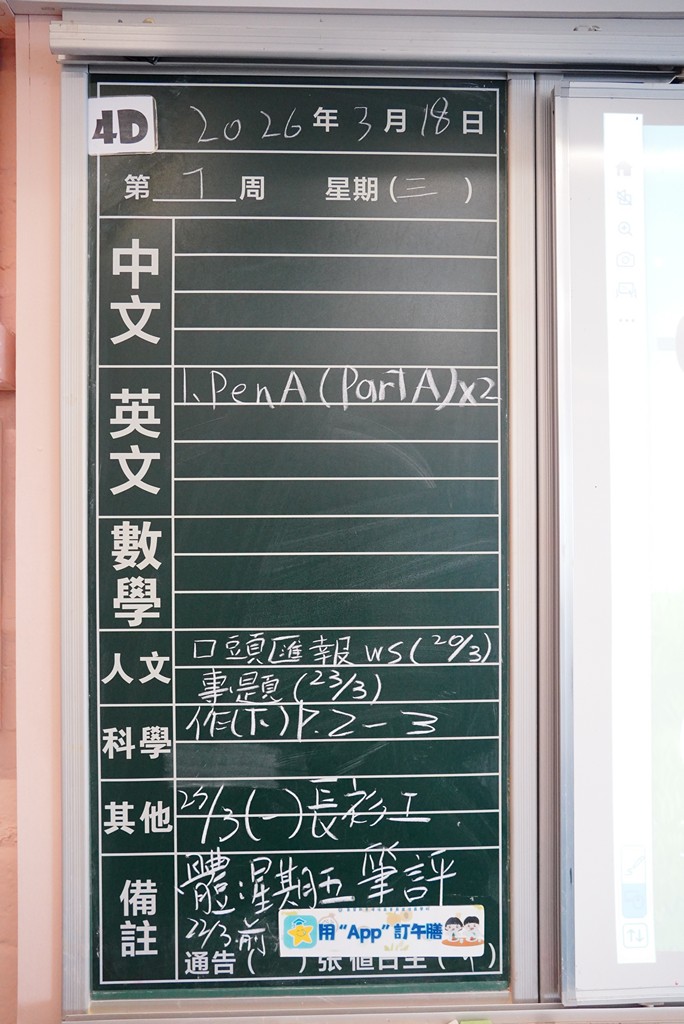 4D
2026年3月18日
第 周 星期(三)
中文
英文
1. Pen A (Part A) x2
數學
人文
口頭匯報 ws (20/3)
專題 (23/3)
科學
作(下) P. 2-3
其他
/3(一)長衫
備註
體 星期五 筆評
22/3前
用“App”訂午膳
通告( )張 值日生( )